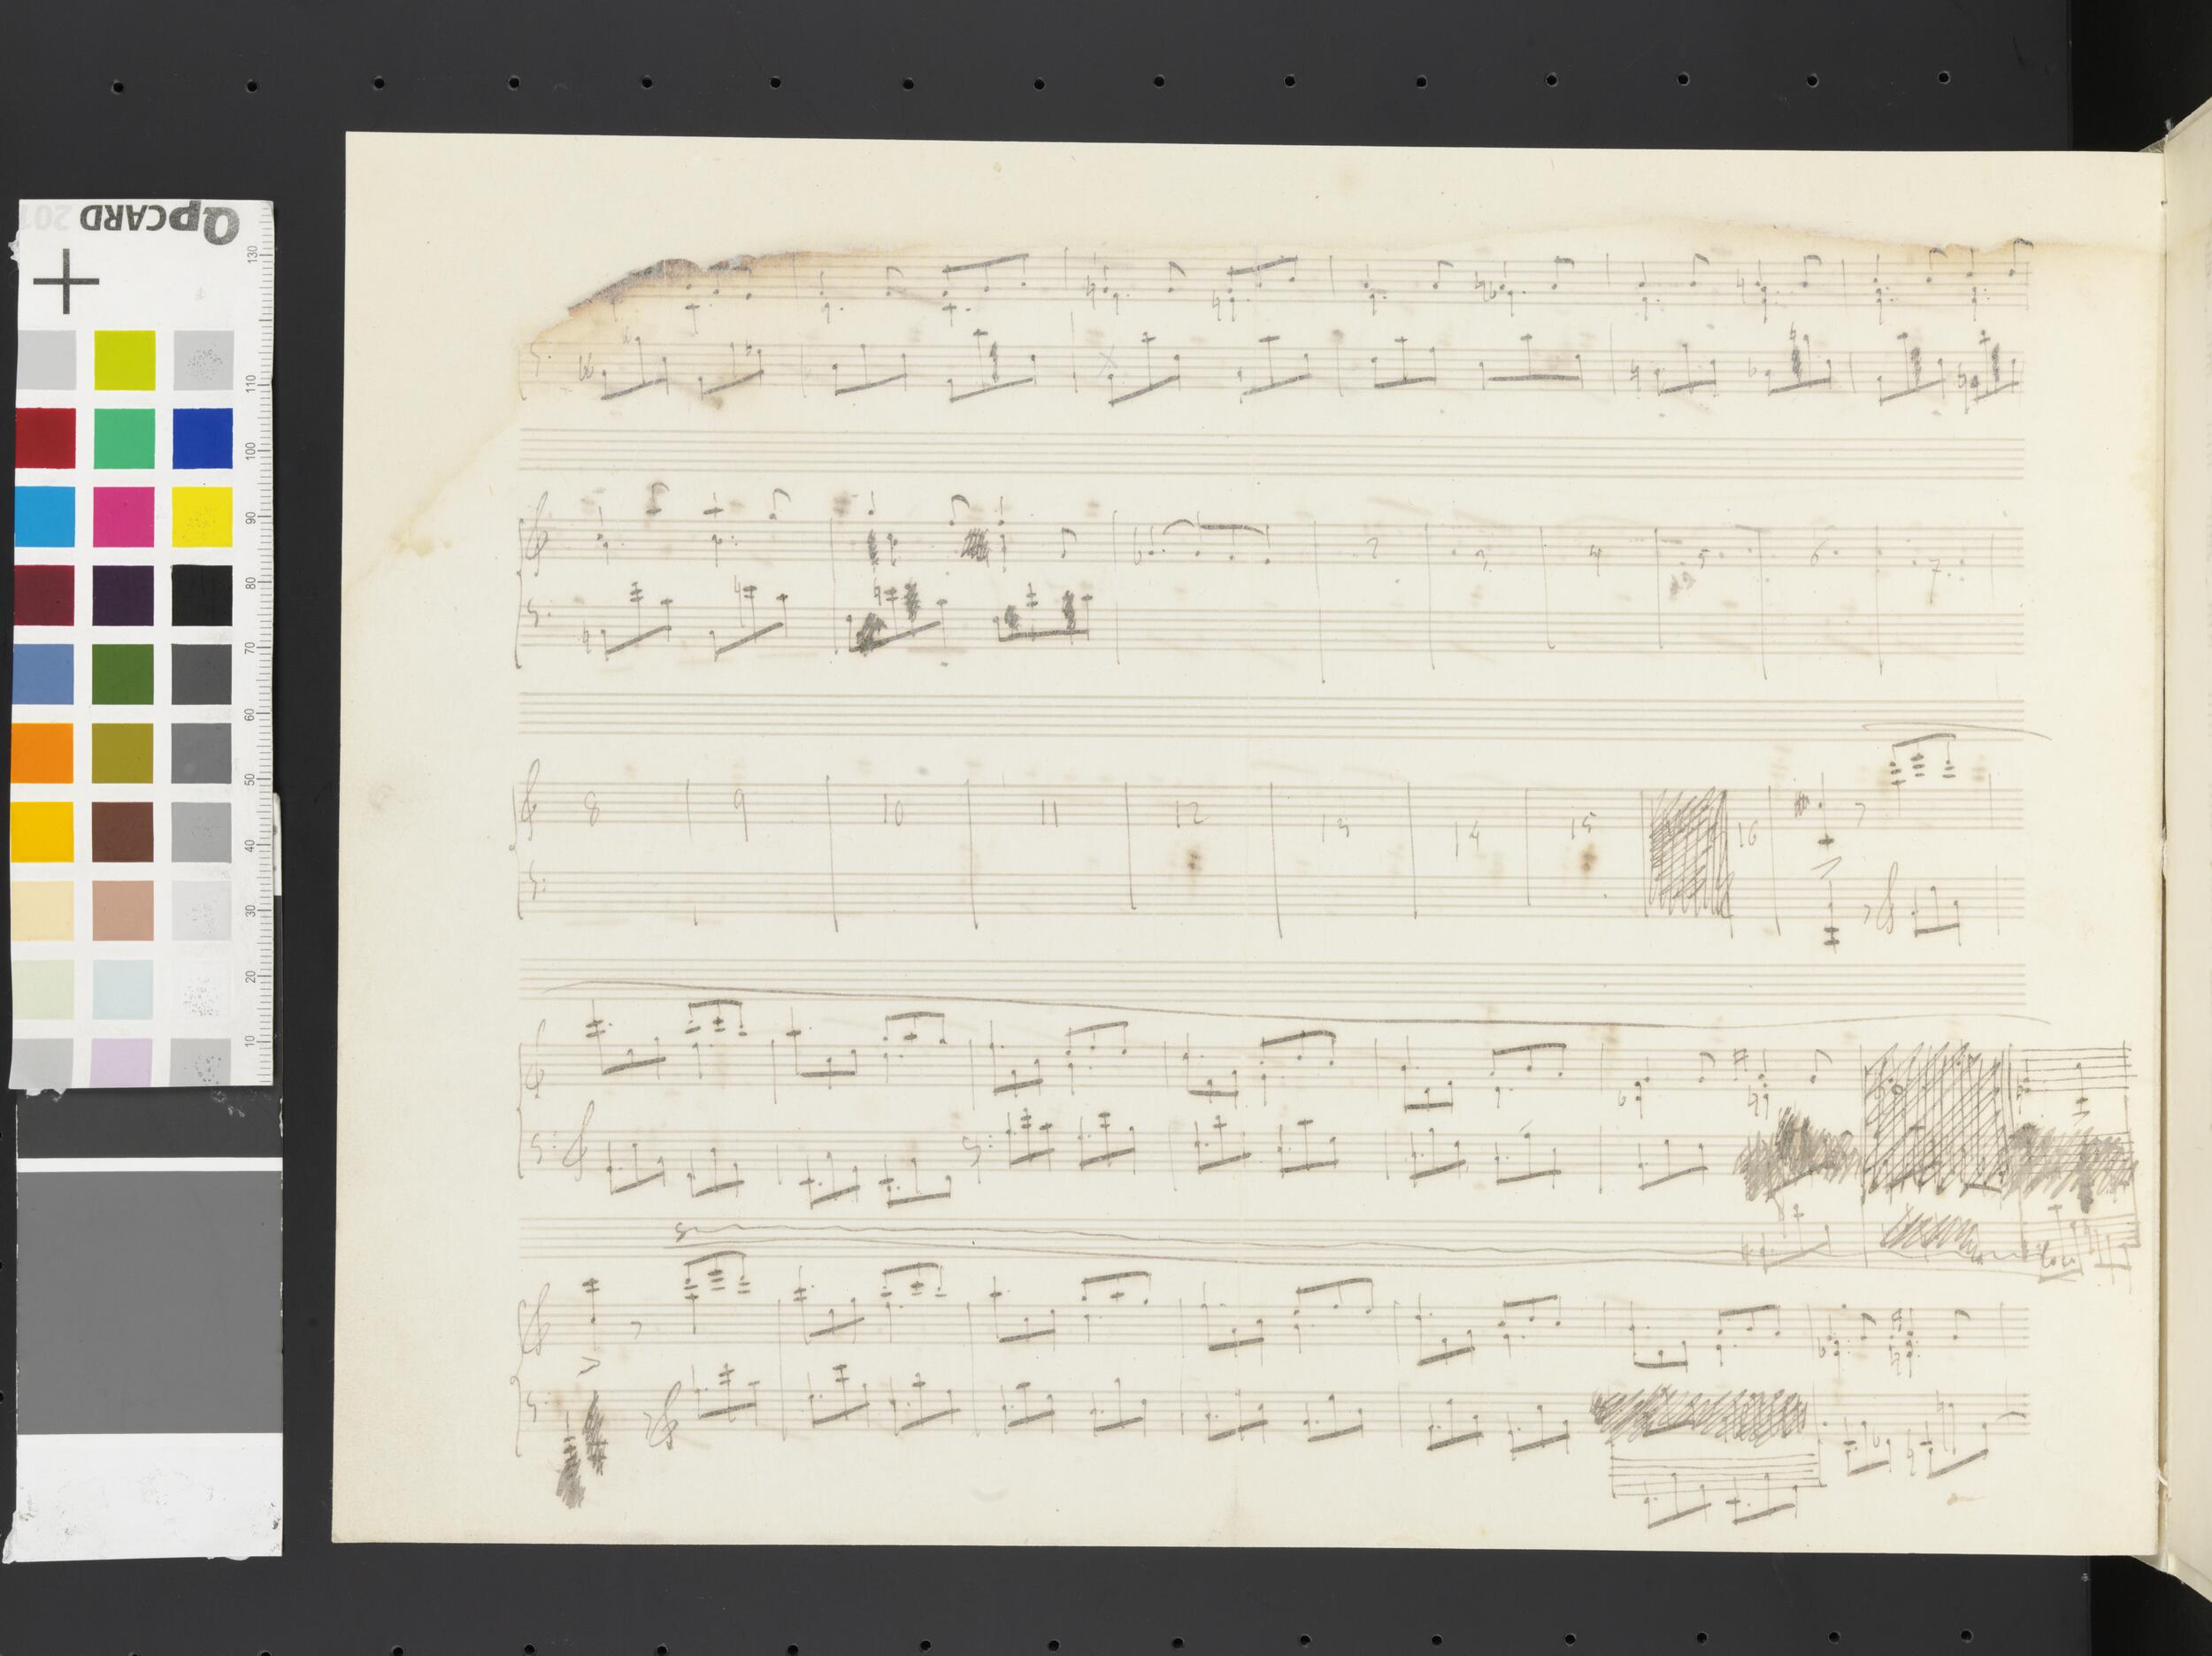 QPCARD 201
130
110
100
90
80
70
60
50
40
30
20
10
2 3 4 5 6 7
8 9 10 11 12 13 14 15 16
8
loco